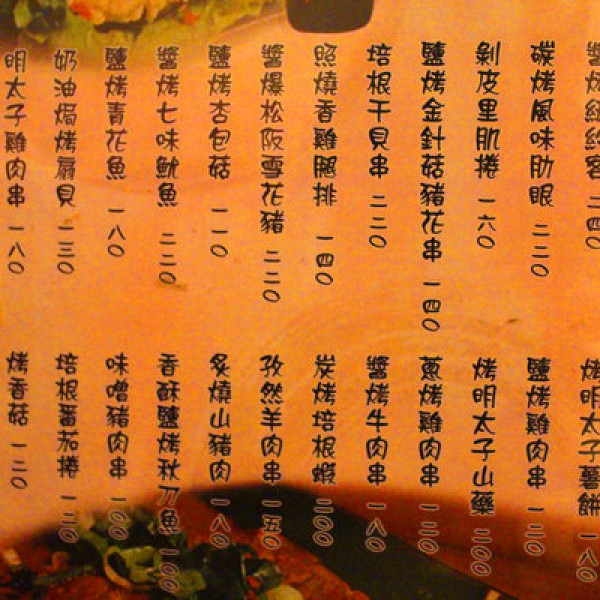 醬烤紐約客 二四〇
碳烤風味肋眼 二二〇
剝皮里肌捲 一六〇
鹽烤金針菇豬花串 一四〇
培根干貝串 二二〇
照燒香雞腿排 一四〇
醬爆松阪雪花豬 二二〇
鹽烤杏包菇 一一〇
醬烤七味魷魚 二二〇
鹽烤青花魚 一八〇
奶油焗烤扇貝 一三〇
明太子雞肉串 一八〇
烤明太子薯餅 一八〇
鹽烤雞肉串 一二〇
烤明太子山藥 二〇〇
蔥烤雞肉串 一二〇
醬烤牛肉串 一八〇
炭烤培根蝦 二〇〇
孜然羊肉串 一五〇
炙燒山豬肉 一八〇
香酥鹽烤秋刀魚 一〇〇
味噌豬肉串 一〇〇
培根番茄捲 一二〇
烤香菇 一二〇